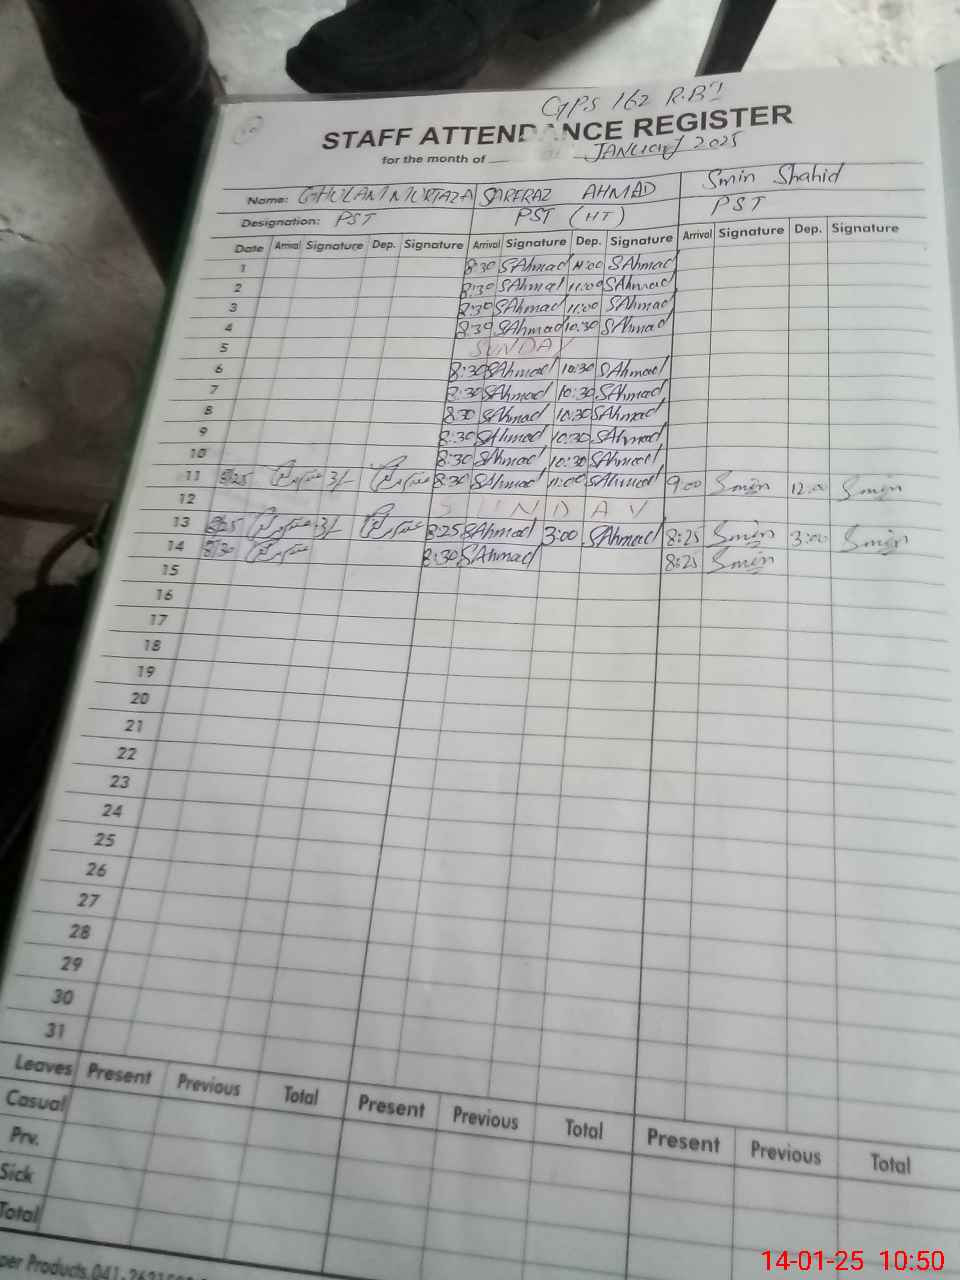 GPS 162 R.B I
STAFF ATTENDANCE REGISTER
for the month of JANUARY 2025
Name: GHULAM MURTAZA SARFRAZ AHMAD Smin Shahid
Designation: PST PST (HT) PST
Date Arrival Signature Dep. Signature Arrival Signature Dep. Signature Arrival Signature Dep. Signature
1 8:30 SAhmad 11:00 SAhmad
2 8:30 SAhmad 11:00 SAhmad
3 8:30 SAhmad 11:00 SAhmad
4 8:30 SAhmad 10:30 SAhmad
5 SUNDAY
6 8:30 SAhmad 10:30 SAhmad
7 8:30 SAhmad 10:30 SAhmad
8 8:30 SAhmad 10:30 SAhmad
9 8:30 SAhmad 10:30 SAhmad
10 8:30 SAhmad 10:30 SAhmad
11 8:30 SAhmad 11:00 SAhmad 9:00 Smin 12:00 Smin
12 SUNDAY
13 8:25 SAhmad 3:00 SAhmad 8:25 Smin 3:00 Smin
14 8:30 8:30 SAhmad 8:25 Smin
15
16
17
18
19
20
21
22
23
24
25
26
27
28
29
30
31
Leaves Present Previous Total Present Previous Total Present Previous Total
Casual
Prv.
Sick
Total
per Products.041-
14-01-25 10:50